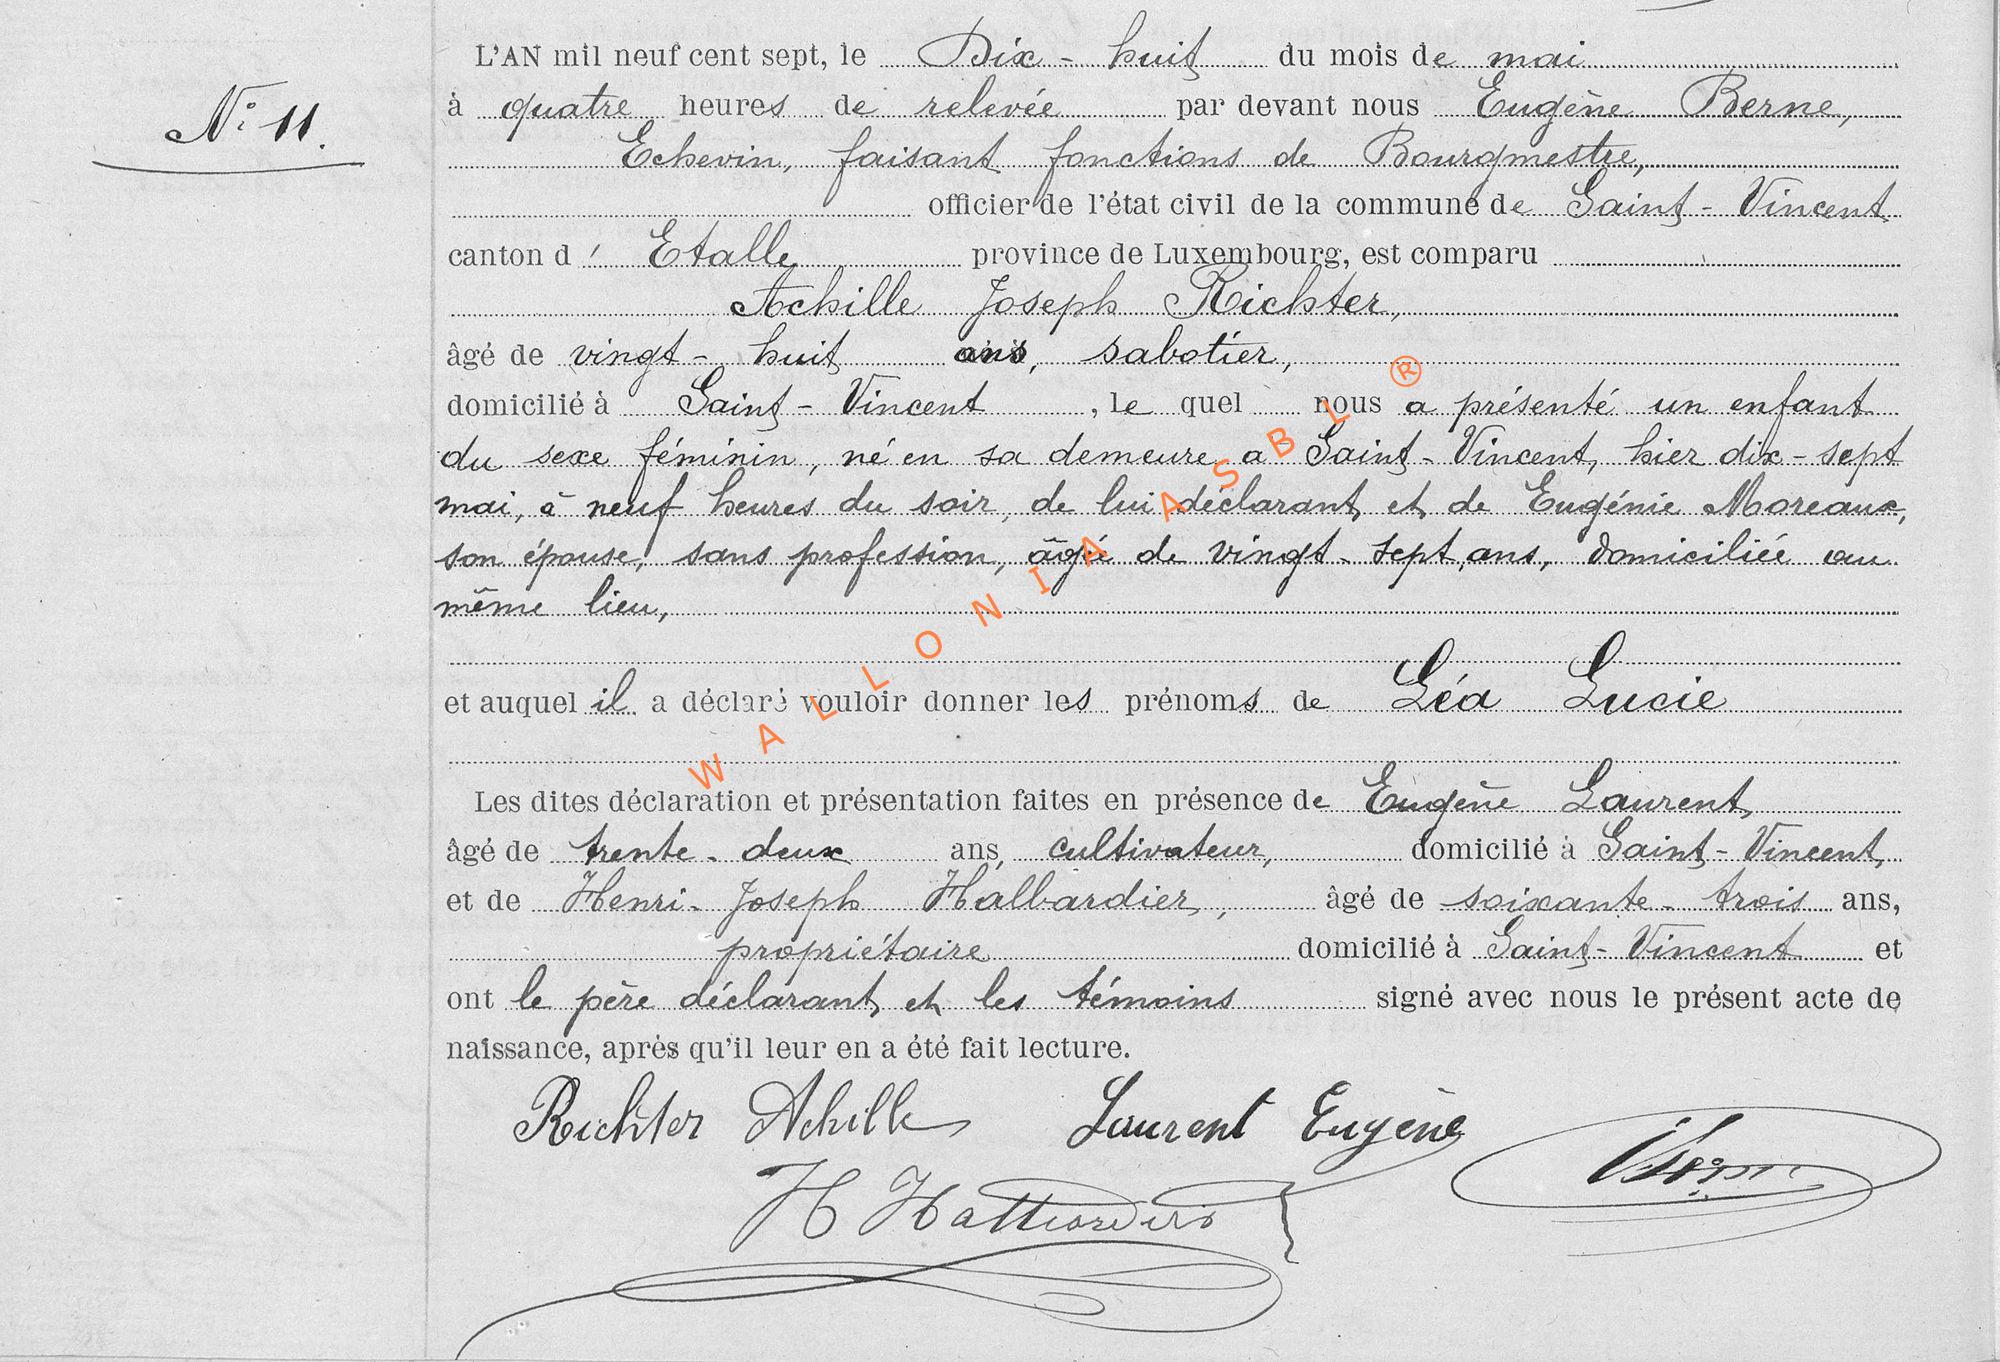 N° 11.
L'AN mil neuf cent sept, le Dix-huit du mois de mai
à quatre heures de relevée par devant nous Eugène Berne,
Echevin, faisant fonctions de Bourgmestre,
officier de l'état civil de la commune de Saint-Vincent
canton d' Etalle province de Luxembourg, est comparu
Achille Joseph Richter,
âgé de vingt-huit ans, sabotier,
domicilié à Saint-Vincent, le quel nous a présenté un enfant
du sexe féminin, né en sa demeure a Saint-Vincent, hier dix-sept
mai, à neuf heures du soir, de lui déclarant et de Eugénie Moreaux,
son épouse, sans profession, âgée de vingt-sept ans, domiciliée au
même lieu,
et auquel il a déclaré vouloir donner les prénoms de Léa Lucie
Les dites déclaration et présentation faites en présence de Eugène Laurent,
âgé de trente-deux ans, cultivateur, domicilié à Saint-Vincent,
et de Henri-Joseph Halbardier, âgé de soixante-trois ans,
propriétaire domicilié à Saint-Vincent et
ont le père déclarant et les témoins signé avec nous le présent acte de
naissance, après qu'il leur en a été fait lecture.
Richter Achille Laurent Eugène
WALLONIA ASBL ®